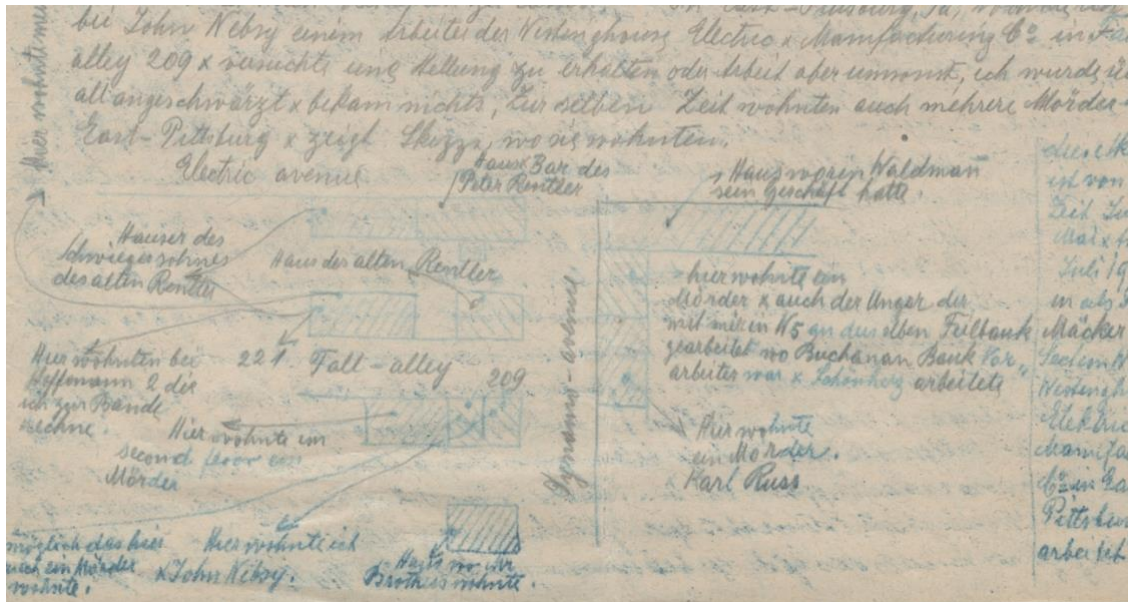 bei John Nebsy einem Arbeiter der Westinghouse Electric x Manufacturing Co in
alley 209 x versuchte uns Stellung zu erhalten oder Arbeit aber umsonst, ich wurde
all angeschwärzt x bekam nichts, zur selben Zeit wohnten auch mehrere Mörder
East-Pittsburg x zeigt Skizze, wo sie wohnten.
Hier wohnte
Electric avenue
Haus x Bar des
Peter Rentler
Haus worin Waldman
sein Geschäft hatte.
Häuser des
Schwiegersohnes
des alten Rentler
Haus des alten Rentler
hier wohnte ein
Mörder x auch der Unger der
mit mir in W5 an derselben Feilbank
gearbeitet wo Buchanan Bank Vor„
arbeiter war x Schönherz arbeitete
Hier wohnten bei
Hoffmann 2 die
ich zur Bande
rechne.
221. Fall-alley 209
Dynamo-avenue
Hier wohnte im
second floor ein
Mörder
Hier wohnte
ein Mörder.
Karl Russ
möglich das hier
auch ein Mörder
wohnte.
Hier wohnte ich
x John Nebsy.
Haus wo ihr
Brother wohnte.
ist von
Zeit
Juli 19
in als
Mäcker
Westingh
Elektric
Manufa
Co in Ea
Pittsbur
arbeitet